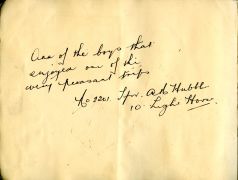 One of the boys that
enjoyed one of the
very pleasant trips
No 2201. Tpr. A Hubbl
10. Light Horse.